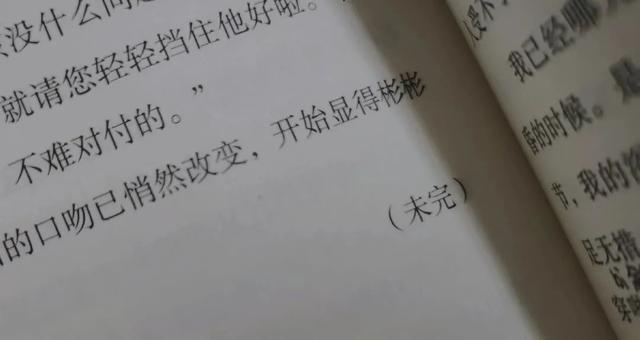 没什么问题
就请您轻轻挡住他好啦。
不难对付的。”
的口吻已悄然改变，开始显得彬彬
（未完）
受不了
我已经哪
的时候。是
节，我的
足无措